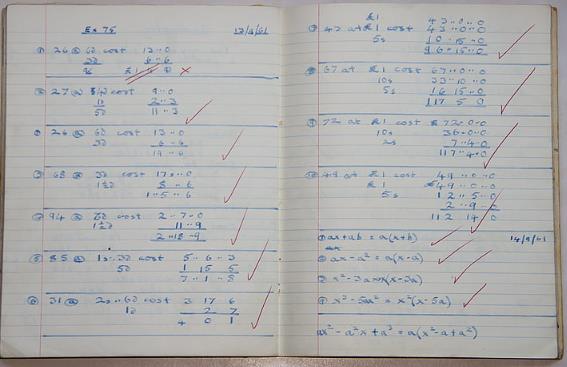 Ex 75 12/9/61
26 @ 6d cost 13..0
3d 6..6
9d £1
② 27 @ 4d cost 9..0
1d 2..3
5d 11..3
① 26 @ 6d cost 13..0
3d 6..6
19..6
③ 68 @ 3d cost 17s..0
1½d 8..6
1..5..6
94 @ 6d cost 2..7..0
1½d 11..9
2..18..9
⑤ 85 @ 1s..3d cost 5..6..3
5d 1 15 5
7..1..8
⑥ 31 @ 2s..6d cost 3 17 6
1d 2 7
4 0 1
£1 43..0..0
43 at £1 cost 43..0..0
5s 10..15..0
96..15..0
67 at £1 cost 67..0..0
10s 33..10..0
5s 16 15..0
117 5 0
72 at £1 cost £72..0..0
10s 36..0..0
2s 7..4..0
49 at £1 cost 49..0..0
£1 49..0..0
5s 12..5..0
2..9..0
112 14 0
① ax+ab = a(x+b) 14/9/61
② ax-a² = a(x-a)
③ x²-3ax x(x-3a)
④ x³-5ax² = x²(x-5a)
ax²-a²x+a³ = a(x²-a+a²)